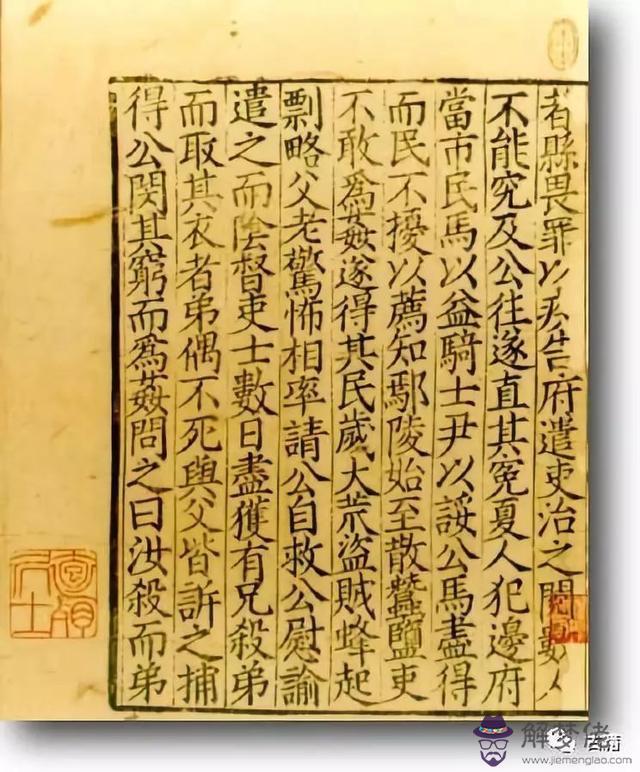 者縣畏罪以疾告府遣吏治之數人
不能究及公往遂直其冤夏人犯邊府
當市民馬以益騎士尹以諉公馬盡得
而民不擾以薦知鄢陵始至散蠶鹽吏
不敢爲姦遂得其民歲大荒盜賊蜂起
剽略父老驚怖相率請公自救公慰諭
遣之而陰督吏士數日盡獲有兄殺弟
而取其衣者弟偶不死與父皆訴之捕
得公閔其窮而爲姦問之曰汝殺而弟
解夢佬
www.jiemenglao.com